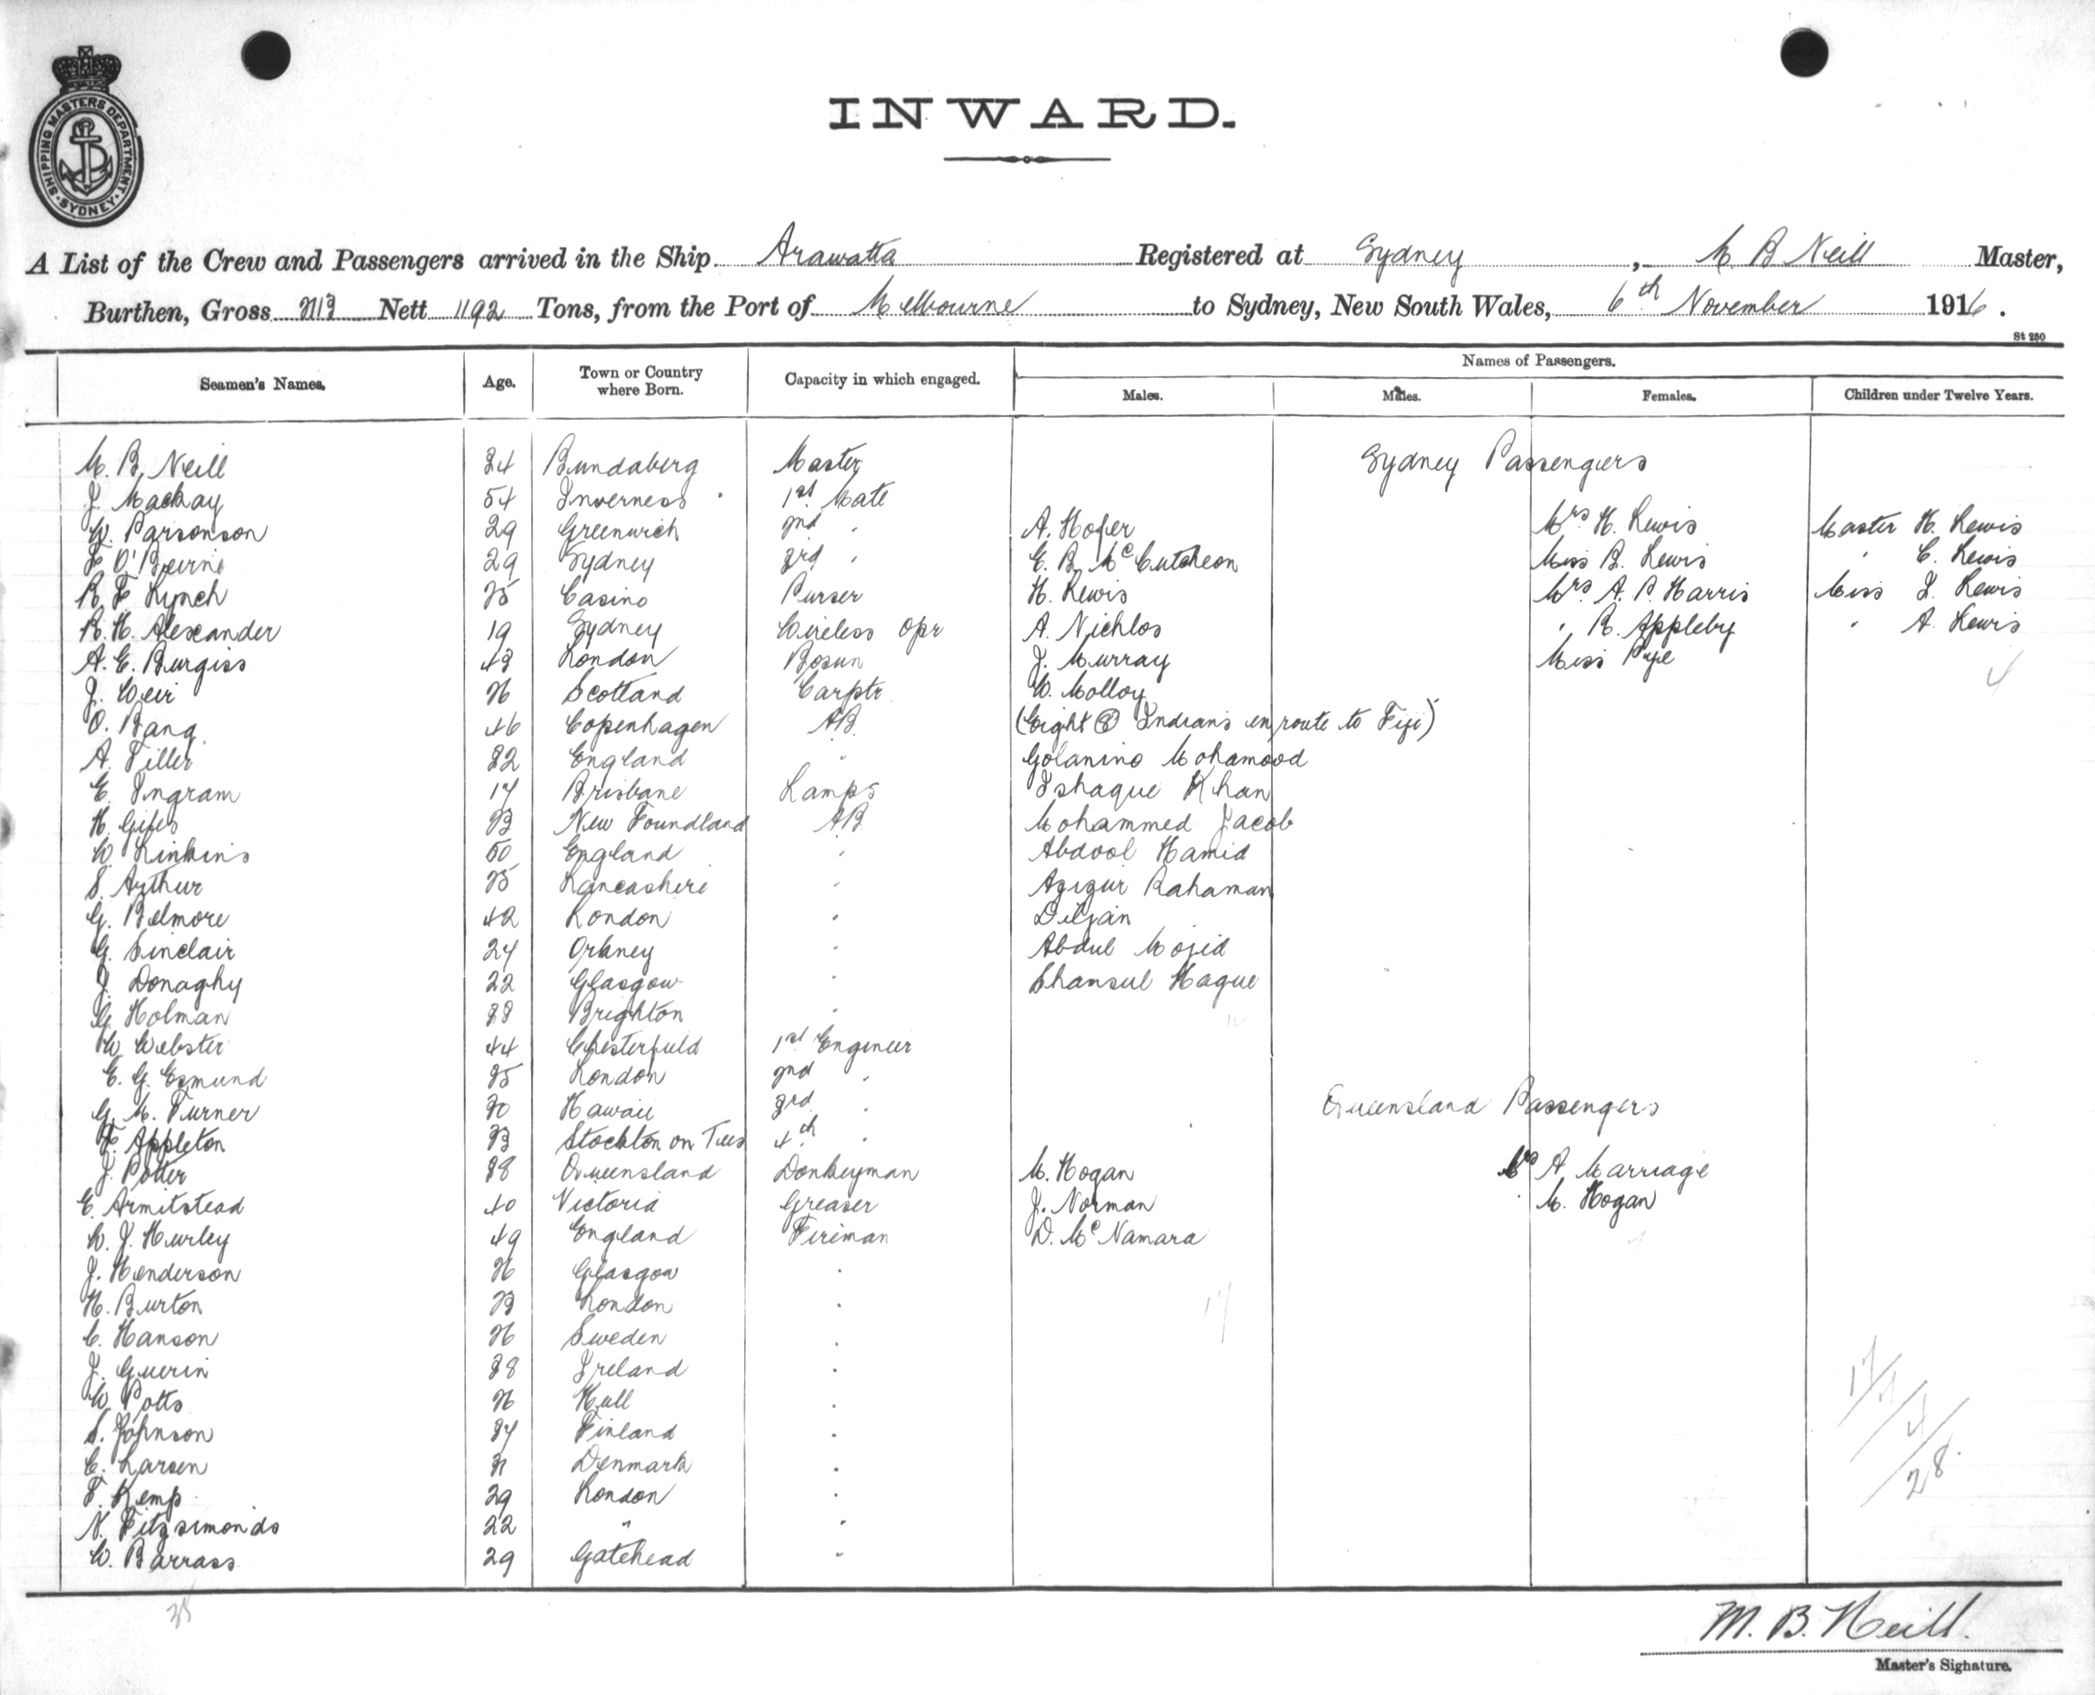 SHIPPING MASTERS DEPARTMENT SYDNEY
INWARD.
A List of the Crew and Passengers arrived in the Ship Arawatta Registered at Sydney, M. B Neill Master,
Burthen, Gross 2113 Nett 1192 Tons, from the Port of Melbourne to Sydney, New South Wales, 6th November 1916.
St 250
Seamen's Names. Age. Town or Country where Born. Capacity in which engaged. Names of Passengers.
Males. Males. Females. Children under Twelve Years.
M. B. Neill 34 Bundaberg Master Sydney Passengers
J. Mackay 54 Inverness 1st Mate
W. Parsonson 29 Greenwich 2nd " A. Hofer Mrs H. Lewis Master H. Lewis
29 Sydney 3rd " E. B. McCutcheon Miss B. Lewis " C. Lewis
R. F. Lynch 25 Casino Purser H. Lewis Mrs A. P. Harris Miss J. Lewis
R. H. Alexander 19 Sydney Wireless Opr A. Nichlos " R. Appleby " A. Lewis
A. E. Burgiss 43 London Bosun J. Murray Miss Pye 4
J. Weir 26 Scotland Carptr. W. Molloy
O. Bang 46 Copenhagen AB (Eight (8) Indians en route to Fiji)
A. Tiller 32 England " Golanino Mohamood
E. Ingram 17 Brisbane Lamps Ishaque Khan
H. Giles 23 New Foundland AB Mohammed Jacob
W. Linkins 50 England " Abdool Hamid
S. Arthur 25 Lancashire " Azizur Rahaman
G. Belmore 42 London " Diljan
G. Sinclair 24 Orkney " Abdul Mojid
J. Donaghy 22 Glasgow " Shansul Haque
G. Holman 38 Brighton "
W Webster 44 Chesterfield 1st Engineer
E. G. Esmund 35 London 2nd "
G. M. Turner 30 Hawaii 3rd " Queensland Passengers
F. Appleton 23 Stockton on Tees 4th "
J. Potter 38 Queensland Donkeyman M. Hogan Mrs A Marriage
E. Armitstead 40 Victoria Greaser J. Norman " M. Hogan
W. J. Hurley 49 England Fireman D. McNamara
J. Henderson 26 Glasgow "
H. Burton 23 London "
C. Hanson 26 Sweden "
J. Guerin 38 Ireland "
W Potts 26 Hull "
S. Johnson 34 Finland "
C. Larsen 31 Denmark "
F. Kemp 29 London "
N. Fitzsimonds 22 " "
W. Barrass 29 Gatehead "
17/7/4/28
35
M. B. Neill.
Master's Signature.